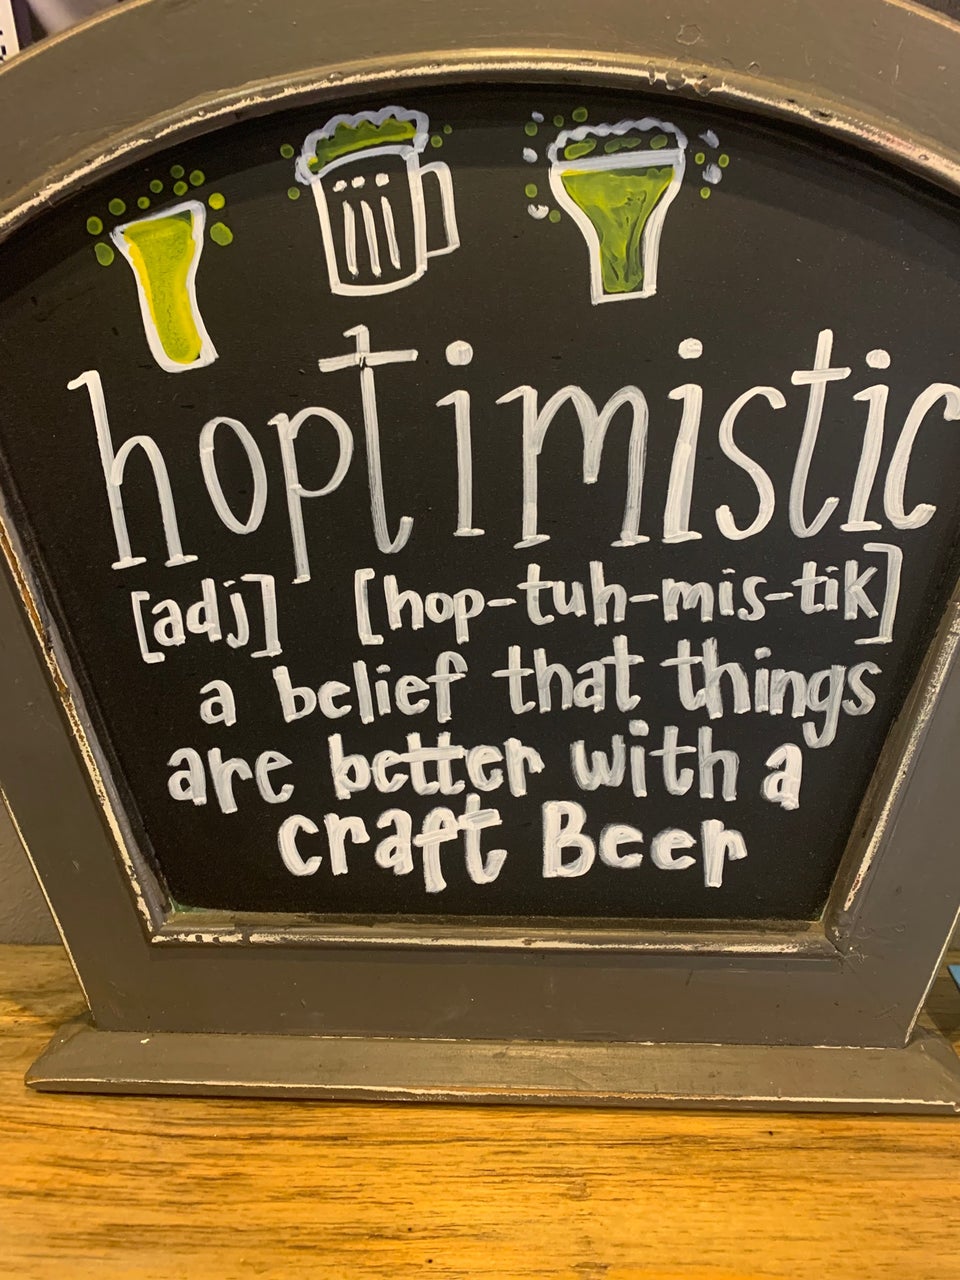 hoptimistic
[adj] [hop-tuh-mis-tik]
a belief that things
are better with a
craft Beer